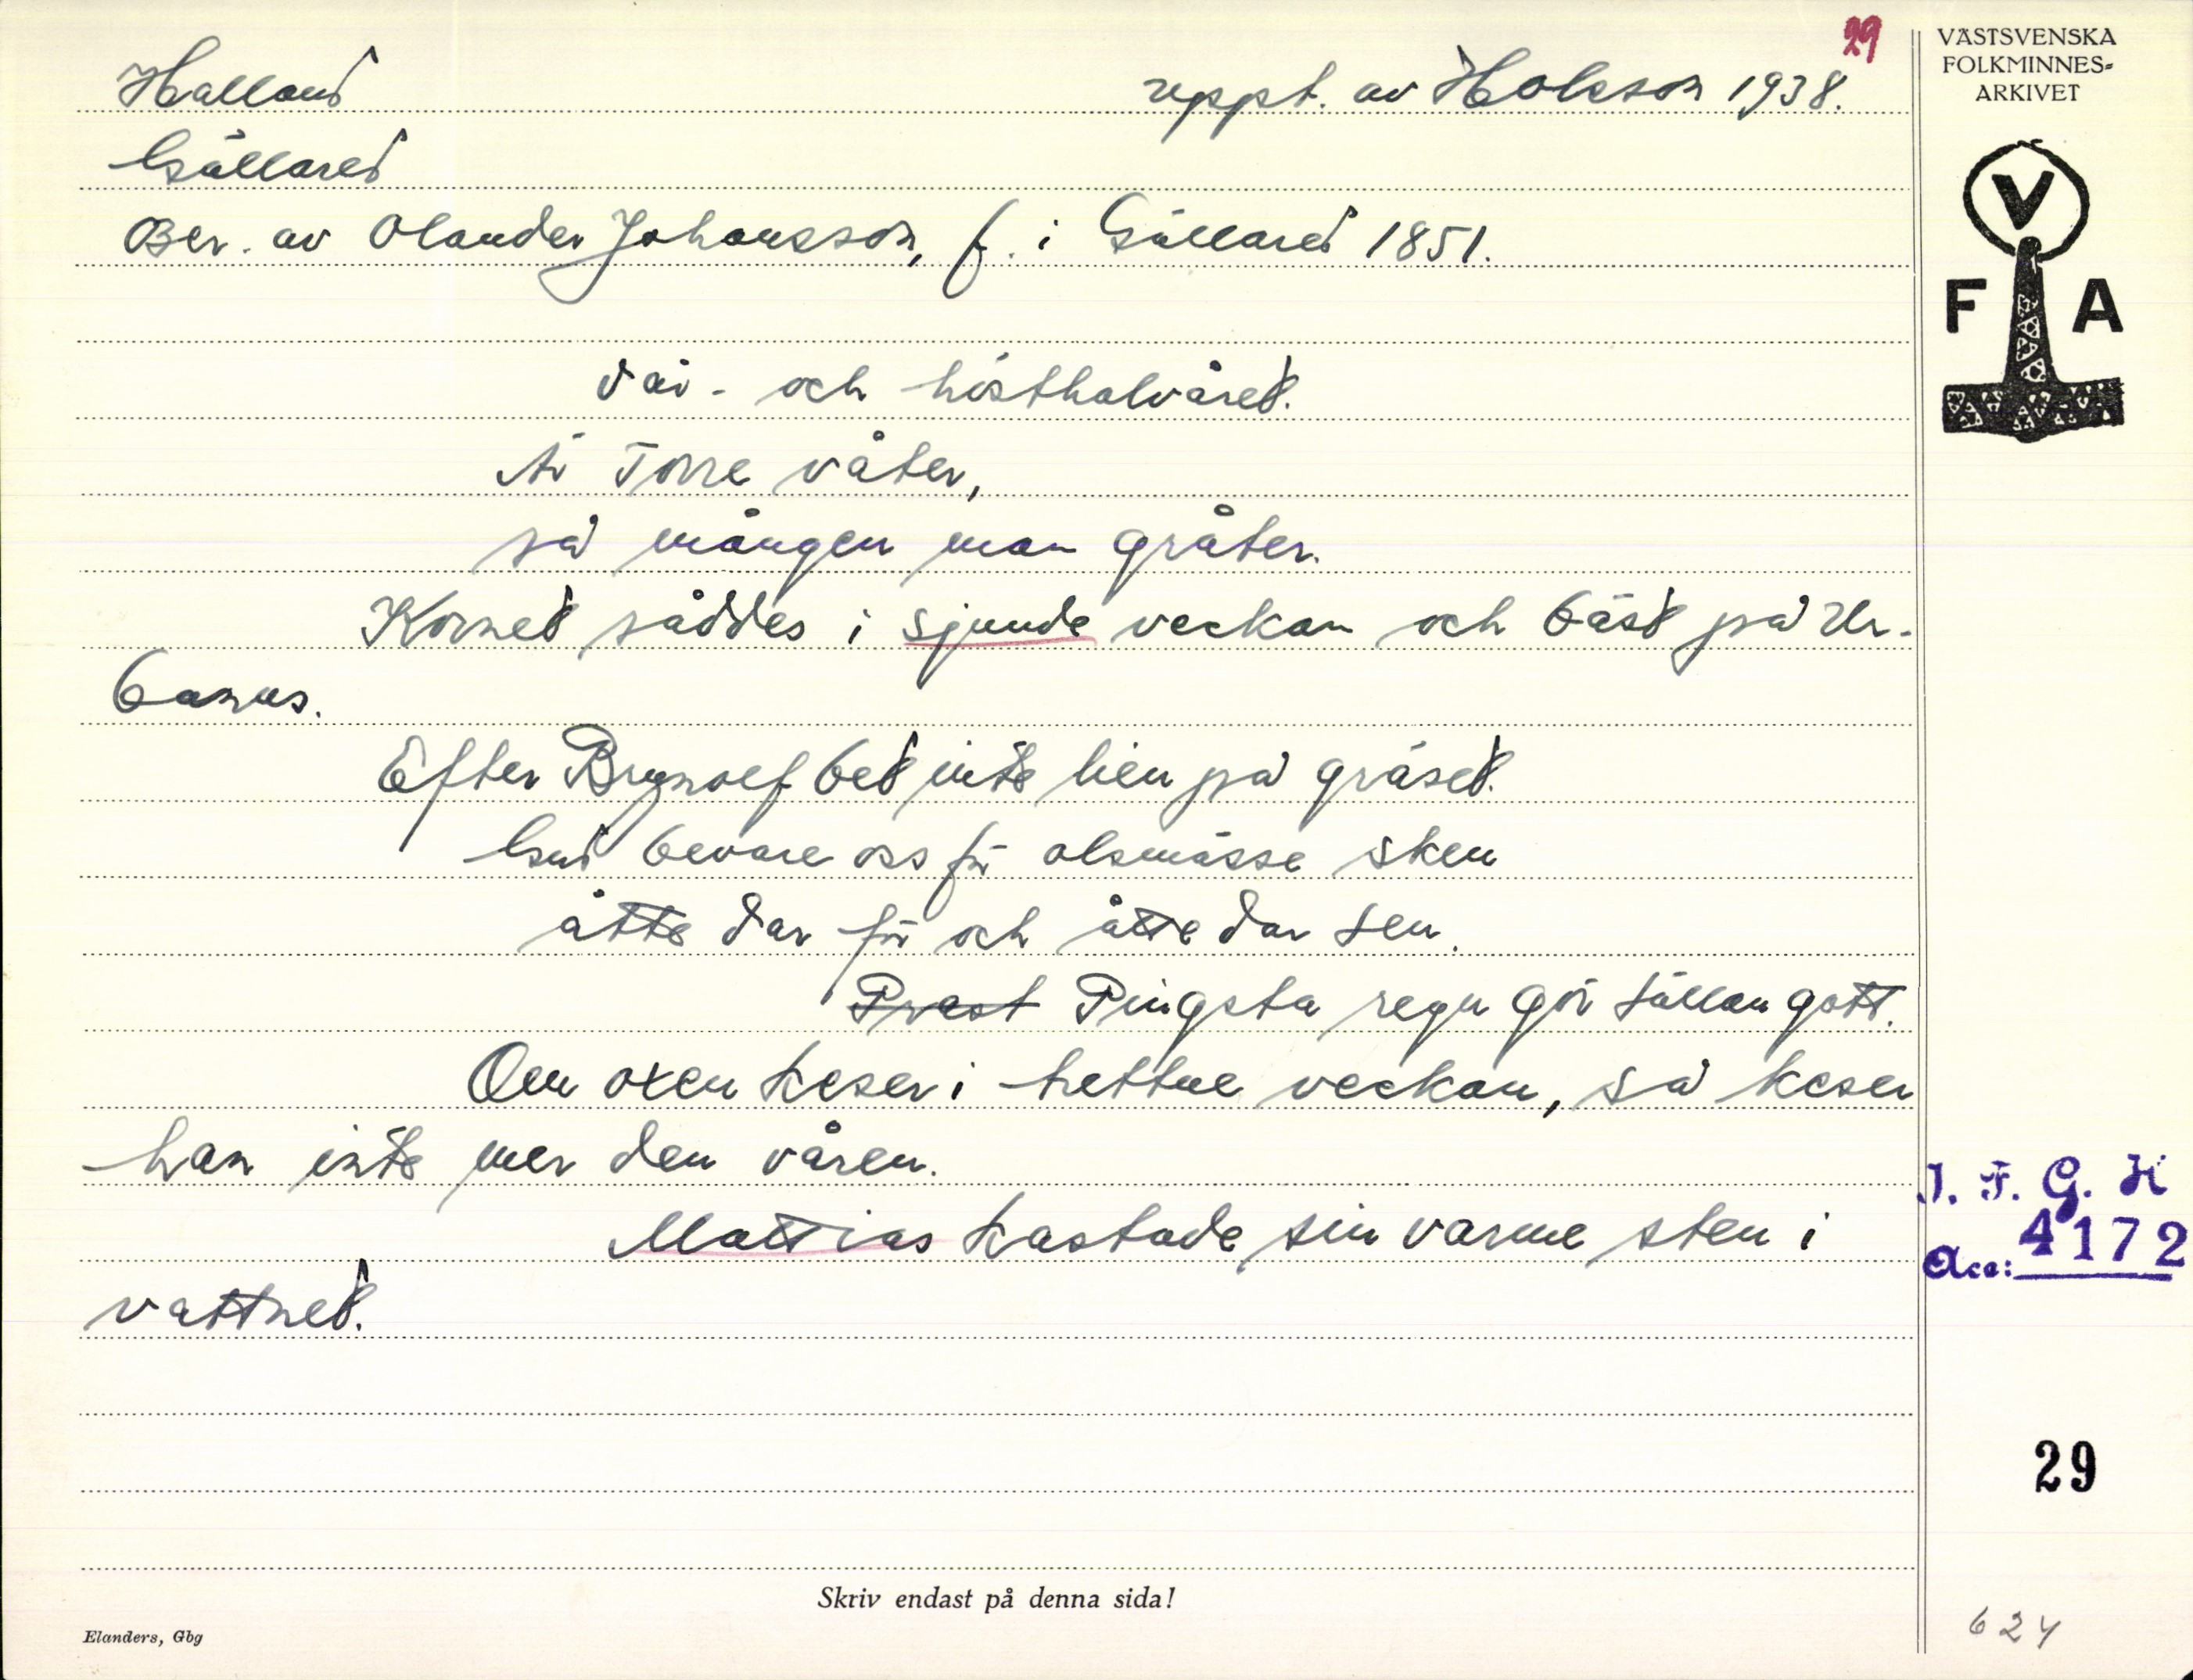 29
VÄSTSVENSKA
FOLKMINNES-
ARKIVET
Halland
uppt. av Holsson 1938.
Gällared
Ber. av Olander Johansson, f. i Gällared 1851.
V
F A
Vår- och hösthalvåret.
Är Torre våter,
så mången man gråter.
Kornet såddes i sjunde veckan och bäst på Ur-
banus.
Efter Brynolf bet inte lien på gräset.
Gud bevare oss för olsmässe sken
åtte dar för och åtte dar sen.
Prast Pingsta regn gör sällan gott.
Om oxen keser i hettne veckan, så keser
han inte mer den våren.
Mattias kastade sin varme sten i
vattnet.
I. F. G. H
Acc: 4172
29
Skriv endast på denna sida!
Elanders, Gbg
624